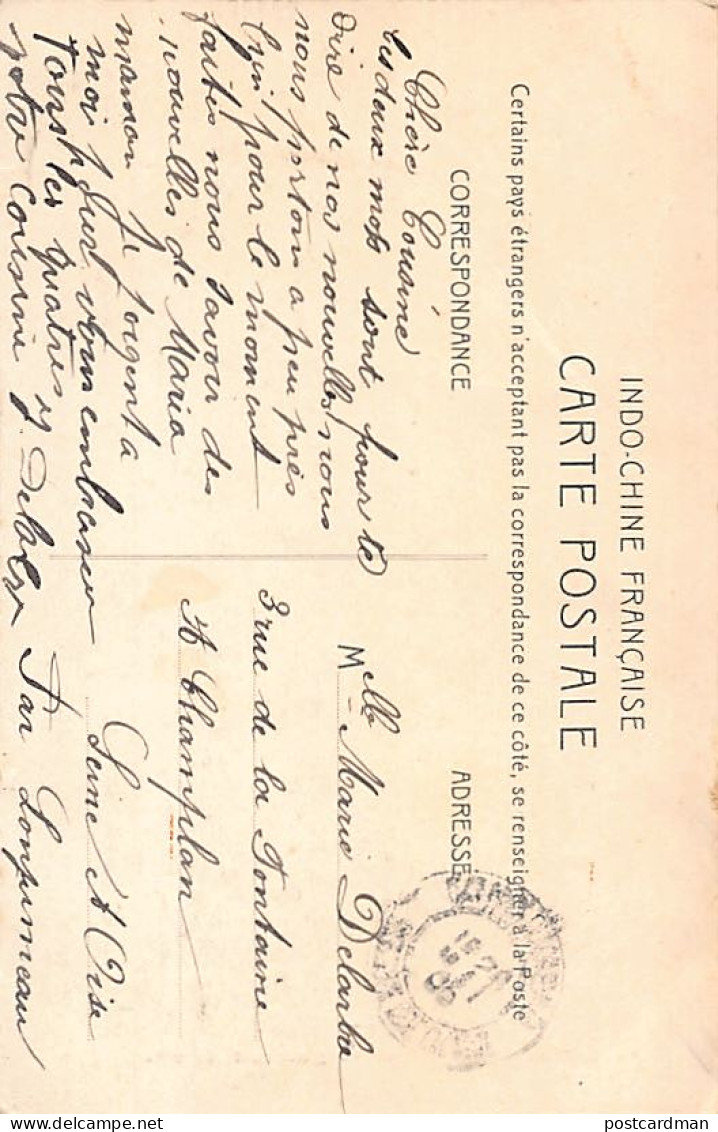 INDO-CHINE FRANÇAISE
CARTE POSTALE
Certains pays étrangers n'acceptant pas la correspondance de ce côté, se renseigner à la Poste
CORRESPONDANCE
Chère Cousine
Ces deux mots sont pour te
dire de nos nouvelles nous
nous portons a peu près
bien pour le moment
faites nous savoir des
nouvelles de Maria
maman se joigent a
moi pour vous embrasser
Tous les quatres
votre cousine
ADRESSE
Melle Marie Delarbre
3 rue de la Fontaine
A Champlan
Seine et Oise
Par Lonjumeau
postcardman